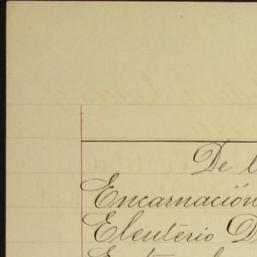 De l
Encarnación
Eleutério D